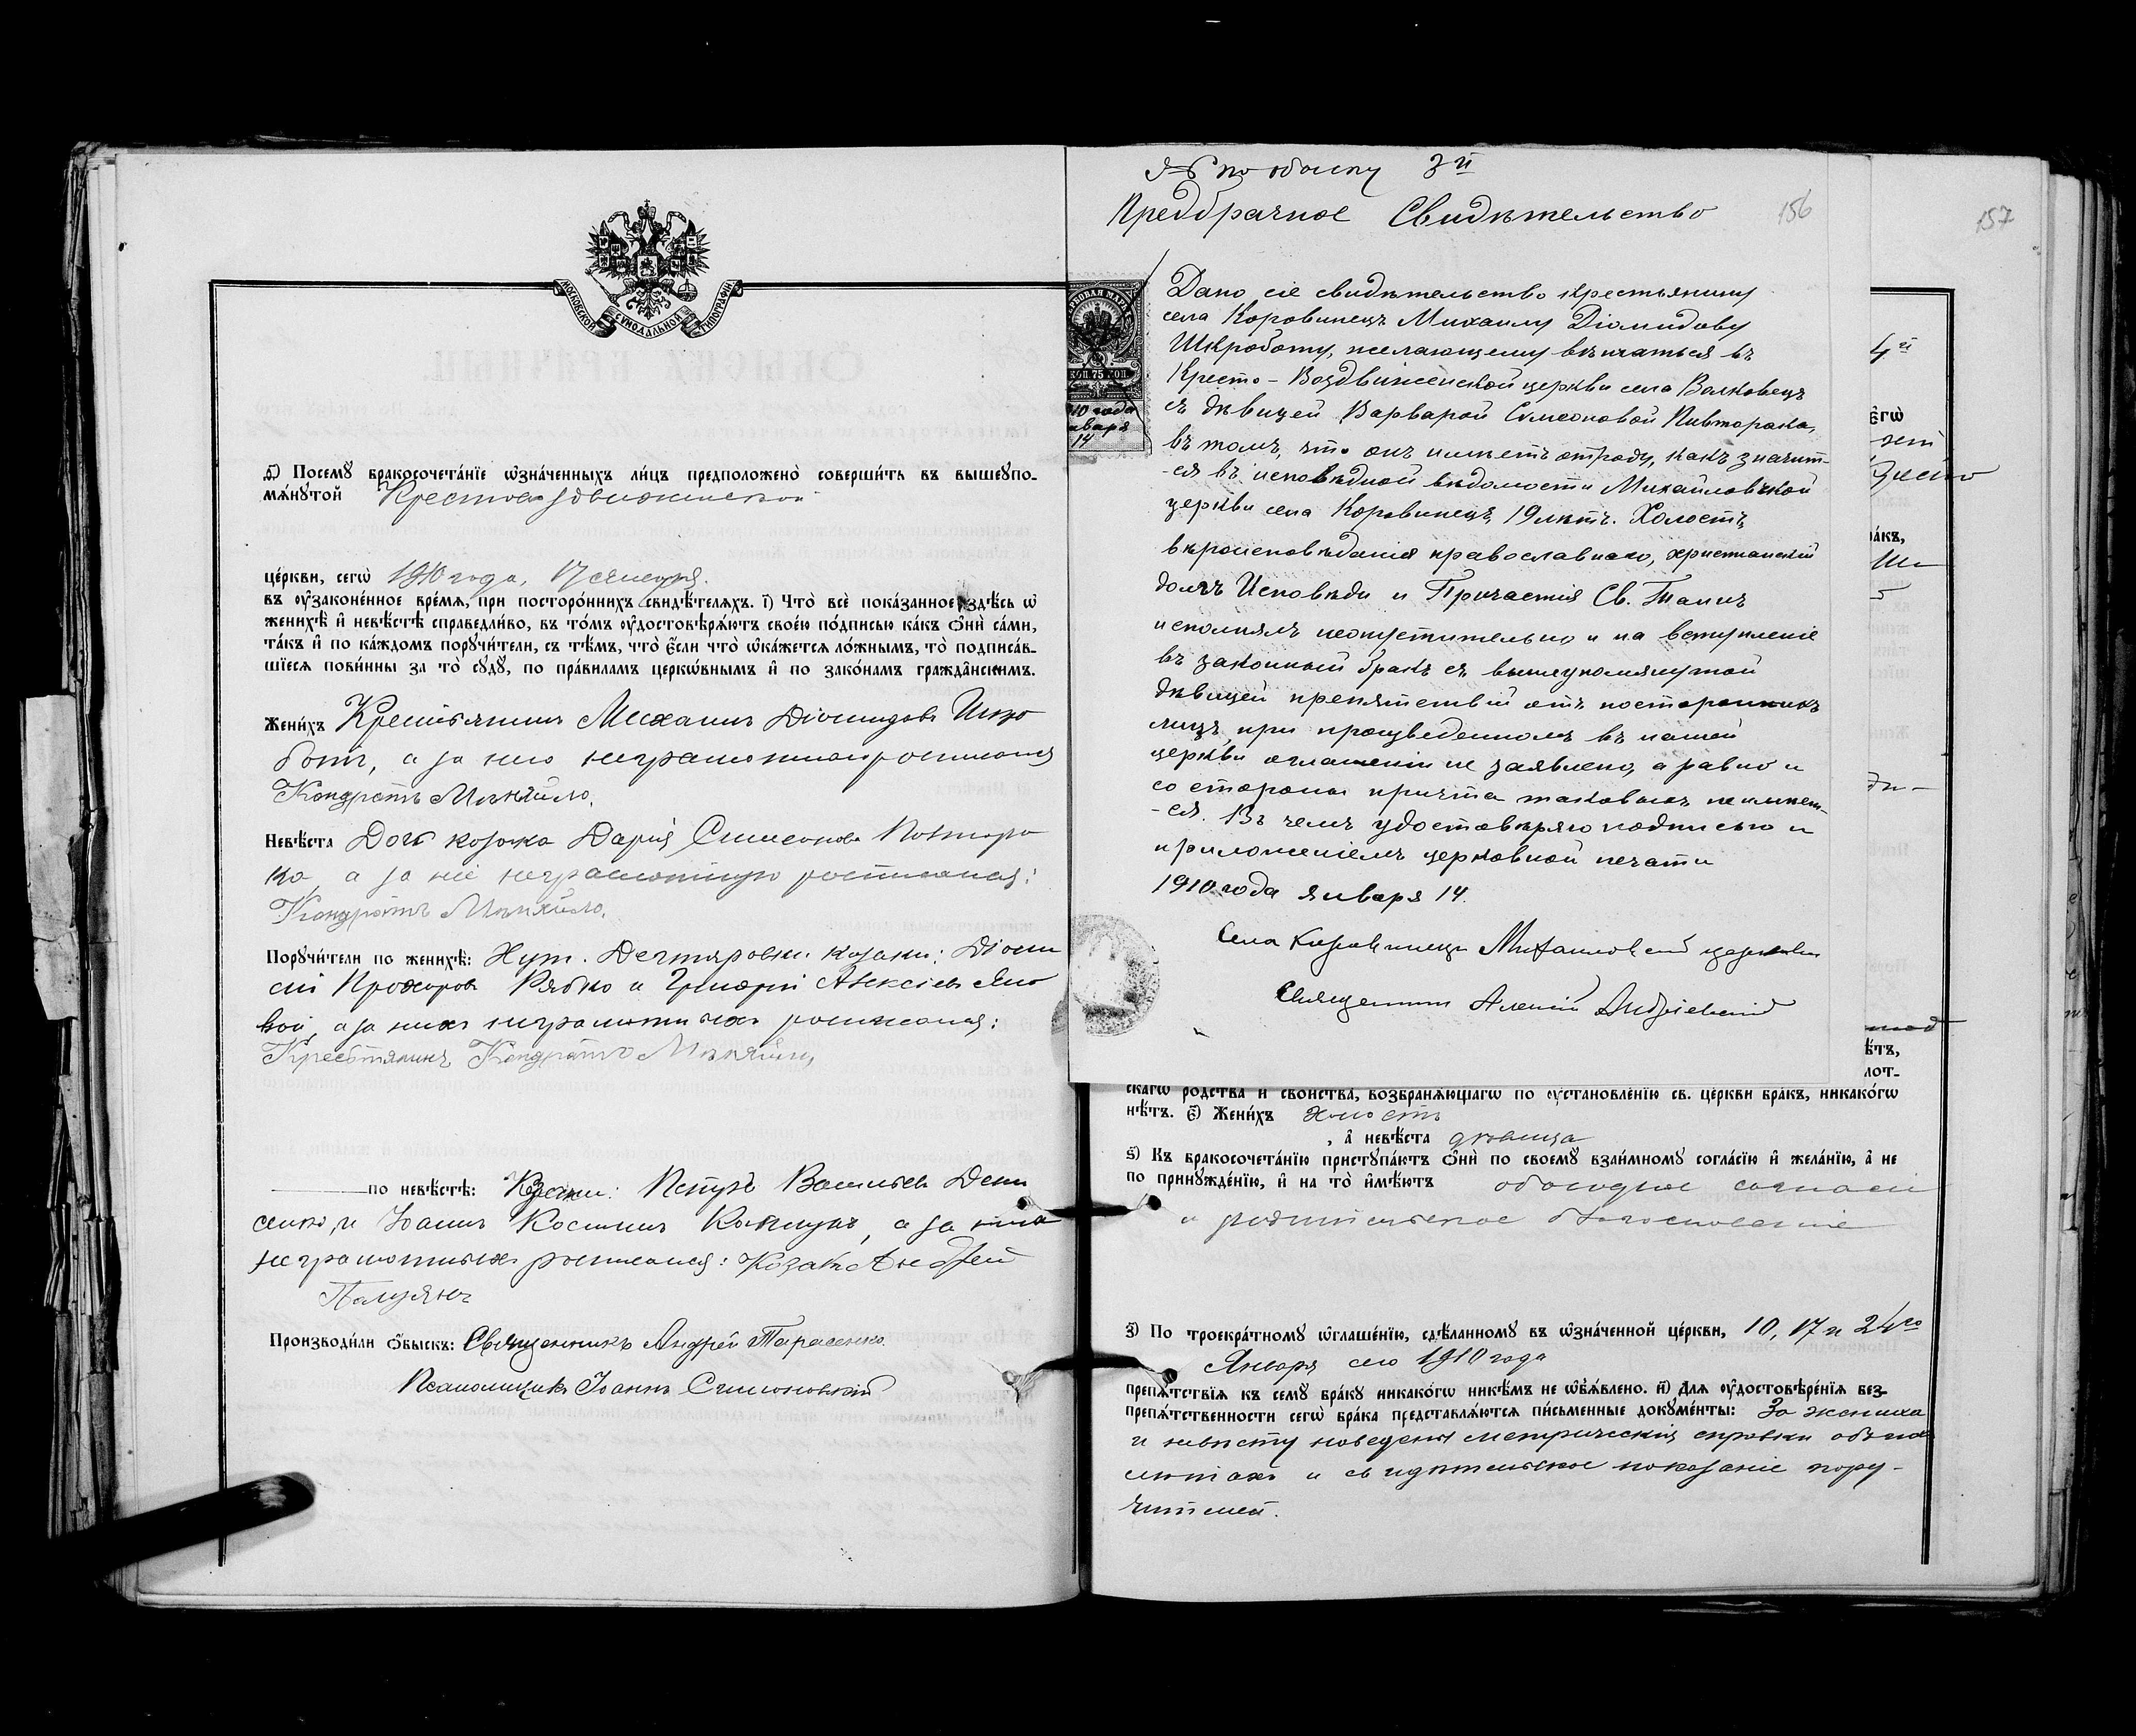 МОСКОВСКОЙ СѴНОДАЛЬНОЙ ТИПОГРАФІИ
д҃і) Посемꙋ бракосочета́нїе ѡзна́ченныхъ ли́цъ предположено̀ соверши́ть въ вышеꙋпо-
мѧ́нꙋтой Крестовоздвиженской
це́ркви, сегѡ̀ 1910 года, 17 января.
въ ᲂу҆законе́нное вре́мѧ, при посторо́ннихъ свидѣ́телѧхъ. і҃) Что̀ всѐ пока́занное здѣ́сь ѡ҆
женихѣ̀ и҆ невѣ́стѣ справедли́во, въ то́мъ ᲂу҆достовѣрѧ́ютъ свое́ю по́дписью ка́къ ѻ҆нѝ са́ми,
та́къ и҆ по ка́ждомъ порꙋчи́тели, съ тѣ́мъ, что̀ є҆́сли что̀ ѡ҆ка́жетсѧ ло́жнымъ, то̀ подписа́в-
шїесѧ пови́нны за то̀ сꙋдꙋ̀, по пра́виламъ церкѡ́внымъ и҆ по зако́намъ гражда̂нскимъ.
Жени́хъ Крестьянинъ Михаилъ Діомидовъ Шкро
ботъ, а за него неграмотнаго росписался
Кондратъ Миняйло.
Невѣ́ста Дочь козака Дарія Симеонова Повторо
ко, а за нее неграмотную росписался:
Кондратъ Миняйло.
Порꙋчи́тели по женихѣ̀: Хут. Дегтяровки козаки: Діони
сій Прохоровъ Рябко и Григорій Алексіевъ Яно
вой, а за нихъ неграмотныхъ росписался:
Крестянинъ Кондратъ Миняйло,
по невѣ́стѣ: Козаки: Петръ Васильевъ Дени
сенко, и Іоаннъ Косминъ Ковтунъ, а за нихъ
неграмотныхъ росписался: Козакъ Андрей
Производи́ли ѻ҆́быскъ: Священникъ Андрей Тарасенко.
Псаломщикъ Іоаннъ Симоновскій
№ 6 по обыску 3й
Предбрачное Свидѣтельство
156
157
КОП. 75 КОП.
10 года
января
14
Дано сіе свидѣтельство крестьянину
села Коровинецъ Михаилу Діомидову
Шкроботу, желающему вѣнчаться въ
Кресто-Воздвиженской церкви села Волковецъ
съ дѣвицей Варварой Сѵмеоновой Пивторака,
въ томъ, что онъ имѣетъ отроду, какъ значит-
-ся въ исповѣдной вѣдомости Михайловской
церкви села Коровинецъ, 19 лѣтъ. Холостъ,
вѣроисповѣданія православнаго, христианскій
долгъ Исповѣди и Причастія Св. Таинъ
исполнялъ неопустительно и на вступленіе
въ законный бракъ съ вышеупомянутой
дѣвицей препятствій отъ постороннихъ
лицъ, при произведенномъ въ нашей
церкви оглашеніи не заявлено, а равно и
со стороны причта таковыхъ не имѣет-
-ся. Въ чемъ удостовѣряю подписью и
приложеніемъ церковной печати
1910 года января 14.
Села Коровинецъ Михаиловской церкви
Священникъ Алексій Андріевскій
4й
є҆гѡ̀
ра́къ,
ѣ́тъ,
лот-
скагѡ родства̀ и҆ сво́йства, возбранѧ́ющагѡ по ᲂу҆становле́нїю св. це́ркви бра́къ, никако́гѡ
нѣ́тъ. є҃) Жени́хъ холостъ
, а҆ невѣ́ста дѣвица
ѕ҃) Къ бракосочета́нїю пристꙋпа́ютъ ѻ҆нѝ по своемꙋ̀ взаи́мномꙋ согла́сїю и҆ жела́нїю, а҆ не
по принꙋжде́нїю, и҆ на то̀ и҆мѣ́ютъ обоюдное согласіе
и родительское благословеніе
з҃) По троекра́тномꙋ ѡ҆глаше́нїю, сдѣ́ланномꙋ въ ѡ҆зна́ченной це́ркви, 10, 17 и 24го
Января сего 1910 года
препѧ́тствїѧ къ семꙋ̀ бра́кꙋ никако́гѡ никѣ́мъ не ѡ҆б̾ѧ́влено. и҃) Длѧ ᲂу҆достовѣре́нїѧ без-
препѧ́тственности сегѡ̀ бра́ка представлѧ́ютсѧ пи́сьменные докꙋме́нты: За жениха
и невѣсту наведены метрическія справки объ их
лѣтахъ и свидѣтельское показаніе пору-
чителей.